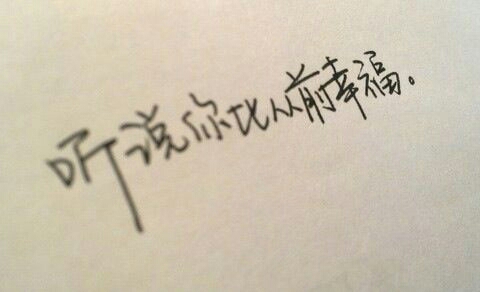 听说你比从前幸福。